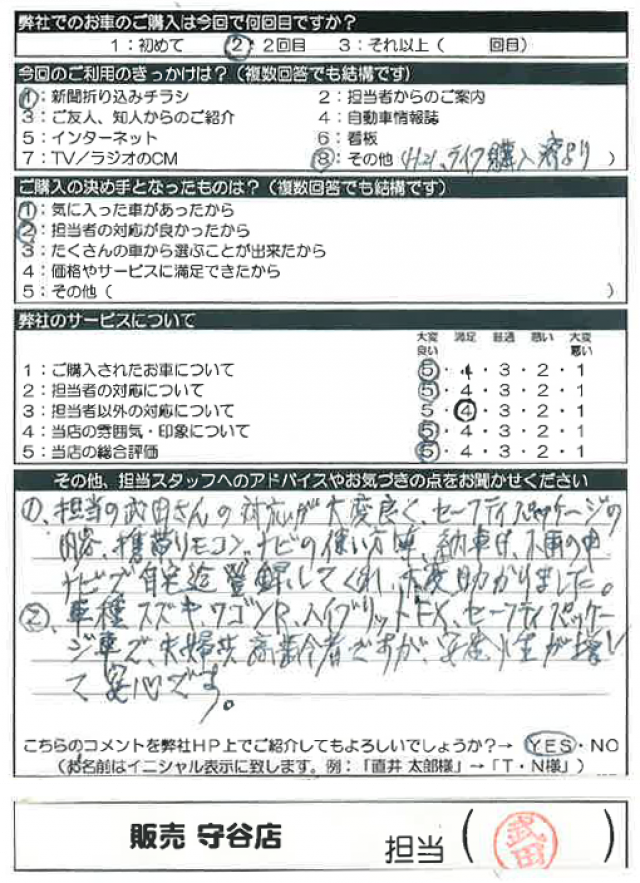 弊社でのお車のご購入は今回で何回目ですか?
1:初めて 2:2回目 3:それ以上( 回目)
今回のご利用のきっかけは?(複数回答でも結構です)
1:新聞折り込みチラシ 2:担当者からのご案内
3:ご友人、知人からのご紹介 4:自動車情報誌
5:インターネット 6:看板
7:TV/ラジオのCM 8:その他(H21、ライフ購入済より)
ご購入の決め手となったものは?(複数回答でも結構です)
1:気に入った車があったから
2:担当者の対応が良かったから
3:たくさんの車から選ぶことが出来たから
4:価格やサービスに満足できたから
5:その他( )
弊社のサービスについて
大変良い 満足 普通 悪い 大変悪い
1:ご購入されたお車について 5・4・3・2・1
2:担当者の対応について 5・4・3・2・1
3:担当者以外の対応について 5・4・3・2・1
4:当店の雰囲気・印象について 5・4・3・2・1
5:当店の総合評価 5・4・3・2・1
その他、担当スタッフへのアドバイスやお気づきの点をお聞かせください
①、担当の武田さんの対応が大変良く、セーフティパッケージの
内容、携帯リモコン、ナビの使い方等、納車時、雨の中
ナビで自宅迄登録してくれ、大変助かりました。
②、車種スズキ、ワゴンR、ハイブリットFX、セーフティパッケー
ジ車で、夫婦共高齢者ですが、安定性が増し
て安心です。
こちらのコメントを弊社HP上でご紹介してもよろしいでしょうか?→ YES・NO
(お名前はイニシャル表示に致します。例:「直井 太郎様」→「T・N様」)
販売 守谷店 担当(武田)